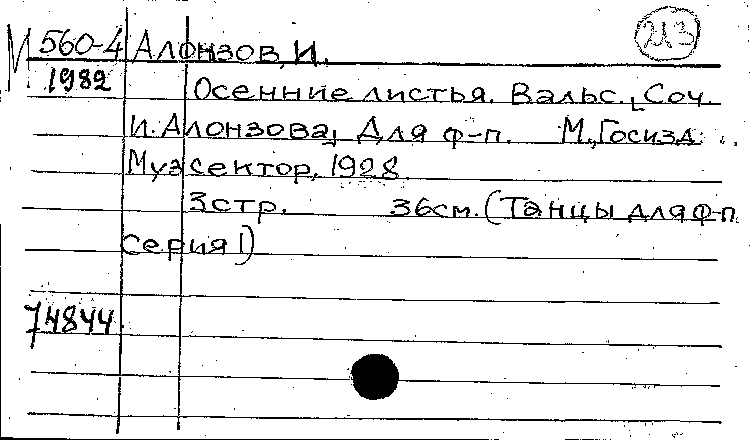 М 560-4 Алонзов, И. 213
1982 Осенние листья. Вальс. [Соч.
И. Алонзова] Для ф-п. М., Госизд.
Музсектор, 1928.
3 стр. 36 см. (Танцы для ф-п.
серия I)
74844